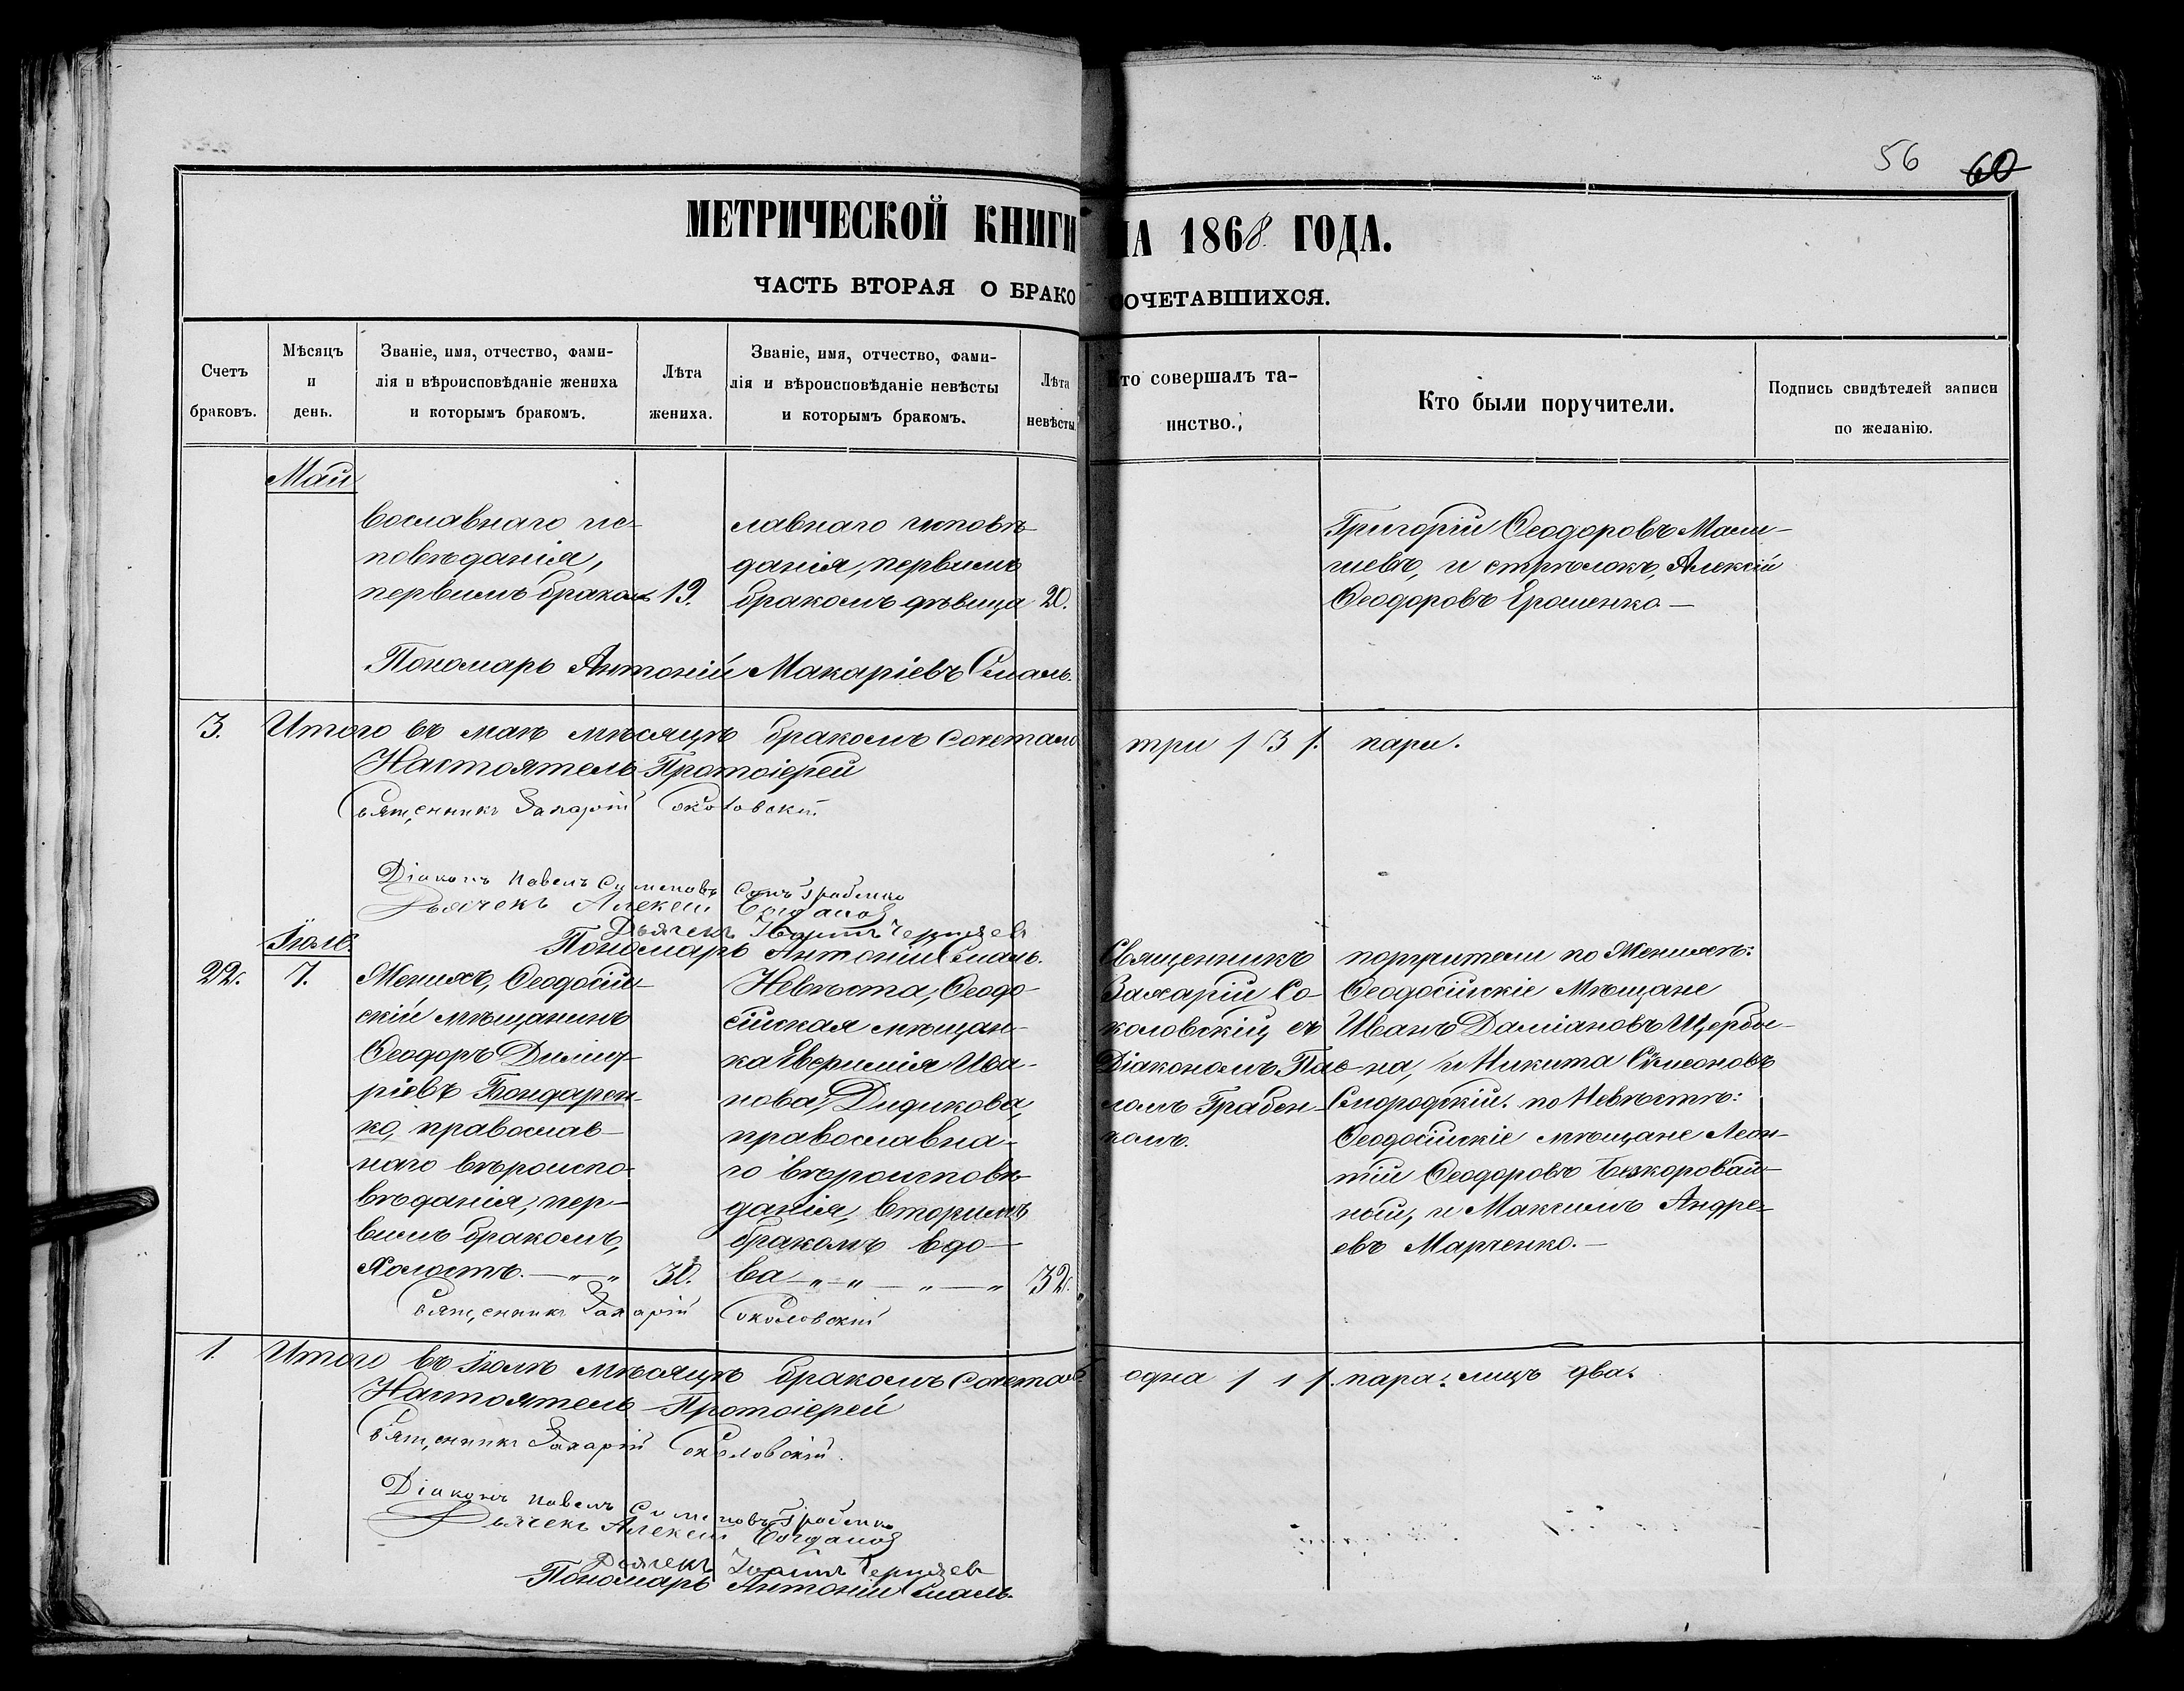 56 60
МЕТРИЧЕСКОЙ КНИГИ НА 1868 ГОДА.
ЧАСТЬ ВТОРАЯ О БРАКОСОЧЕТАВШИХСЯ.
Счетъ браковъ.
Мѣсяцъ и день.
Званіе, имя, отчество, фами-
лія и вѣроисповѣданіе жениха
и которымъ бракомъ.
Лѣта жениха.
Званіе, имя, отчество, фами-
лія и вѣроисповѣданіе невѣсты
и которымъ бракомъ.
Лѣта невѣсты.
Кто совершалъ та-
инство.
Кто были поручители.
Подпись свидѣтелей записи
по желанію.
Май
вославнаго ис-
повѣданія,
первымъ бракомъ 19.
лавнаго исповѣ
данія, первымъ
бракомъ дѣвица 20.
Григорій Ѳеодоровъ
и стрѣлокъ, Алексій
Ѳеодоровъ Ерошенко —
Пономарь Антоній Макаріевъ
3. Итого въ маѣ мѣсяцѣ бракомъ сочетало три / 3 /. пары.
Настоятель Протоіерей
Священникъ Захарій Соколовскій
Діаконъ Павелъ Симеоновъ сынъ Грабенко
Дьячекъ Алексѣй Богданов
Дьячекъ Іоаннъ
Пономарь Антоній
Іюль.
22. 7.
Женихъ, Ѳеодосій-
скій мѣщанинъ
Ѳеодоръ Димит-
ріевъ Бондарен-
ко, православ-
наго вѣроиспо-
вѣданія, пер-
вымъ бракомъ,
холостъ. — „ — „ 30.
Невѣста, Ѳеодо-
сійская мѣщан-
ка Евфимія Ива-
нова, Дидикова,
православна-
го вѣроисповѣ
данія, вторымъ
бракомъ вдо-
ва — „ — „ — „ — „ 32.
Священникъ
Захарій Со-
коловскій, съ
Діакономъ Пав-
ломъ Грабен-
комъ.
поручители по Женихѣ:
Ѳеодосійскіе Мѣщане
Иванъ Даміановъ Щерби-
на, и Никита Симеоновъ
Смородскій. по Невѣстѣ:
Ѳеодосійскіе мѣщане Леон-
тій Ѳеодоровъ Безкоровай-
ный, и Максимъ Андре-
евъ Марченко. —
Священникъ Захарій Соколовскій
1. Итого въ Іюлѣ мѣсяцѣ бракомъ сочетало одна / 1 /. пара: лицъ два.
Настоятель Протоіерей
Священникъ Захарій Соколовскій.
Діаконъ Павелъ Симеоновъ Грабенко
Дьячекъ Алексѣй Богданов
Дьячекъ Іоаннъ
Пономарь Антоній